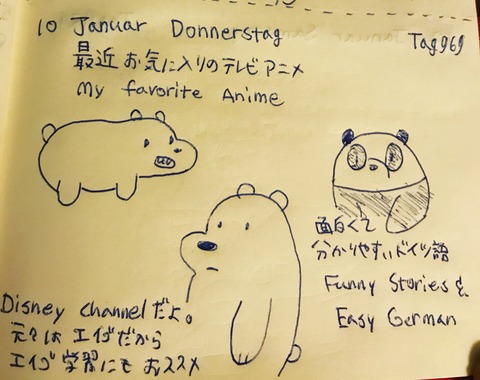 10 Januar Donnerstag
Tag969
最近お気に入りのテレビアニメ
My favorite Anime
面白くて
分かりやすいドイツ語
Funny Stories &
Easy German
Disney channelだよ。
元々はエイゴだから
エイゴ学習にもおススメ